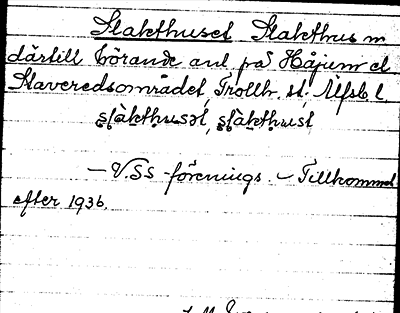 Slakthuset Slakthus m
därtill hörande anl på Håjum el
Staveredsområdet, Trollh. st, Älfsb l
slàkthusət, slàkthust
– V.SS -förenings. – Tillkommet
efter 1936.